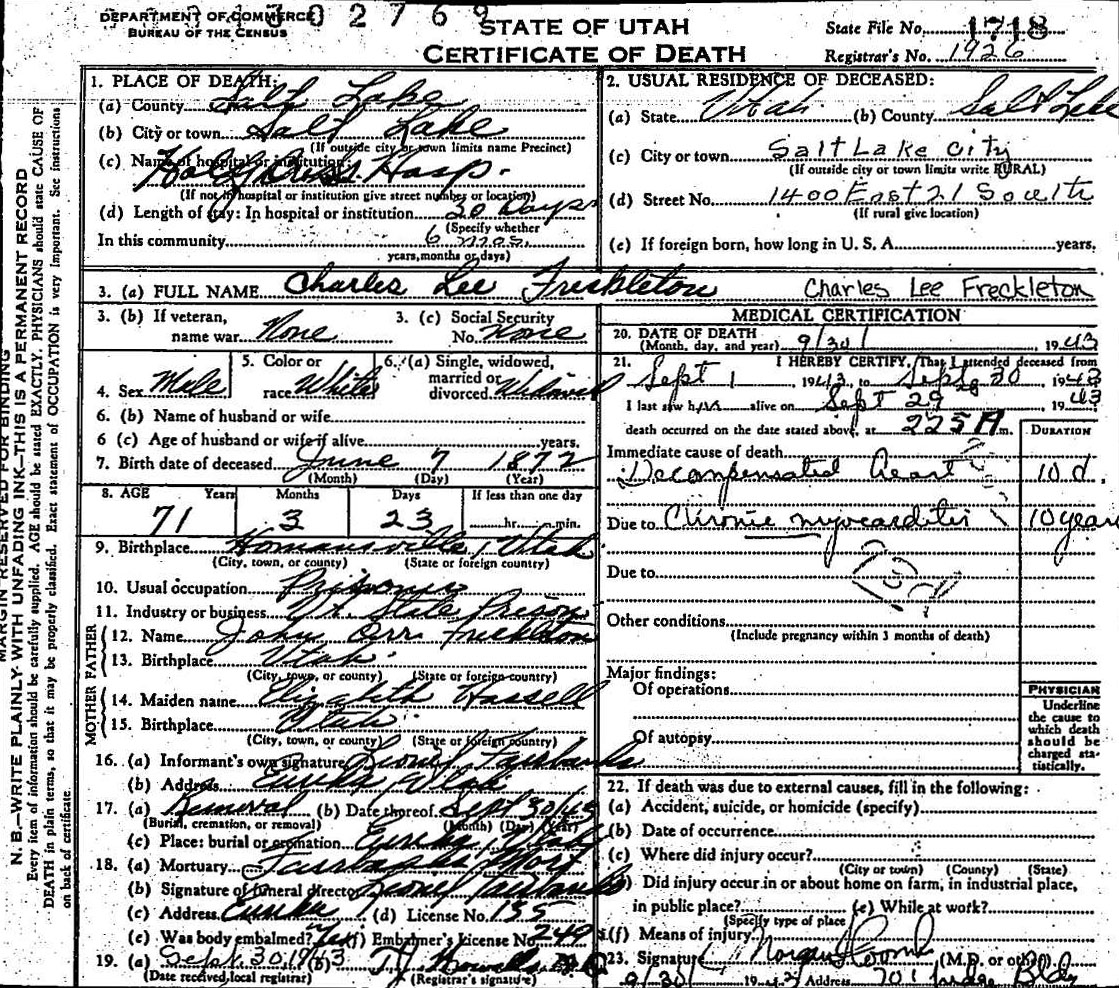 DEPARTMENT OF COMMERCE
BUREAU OF THE CENSUS
1302769
STATE OF UTAH
CERTIFICATE OF DEATH
State File No. 1718
Registrar's No. 1926
MARGIN RESERVED FOR BINDING
N. B.—WRITE PLAINLY WITH UNFADING INK—THIS IS A PERMANENT RECORD
Every item of information should be carefully supplied. AGE should be stated EXACTLY. PHYSICIANS should state CAUSE OF
DEATH in plain terms, so that it may be properly classified. Exact statement of OCCUPATION is very important. See instructions
on back of certificate.
1. PLACE OF DEATH:
(a) County Salt Lake
(b) City or town Salt Lake
(If outside city or town limits name Precinct)
(c) Name of hospital or institution:
Holy Cross Hosp.
(If not in hospital or institution give street number or location)
(d) Length of stay: In hospital or institution 30 Days
(Specify whether
In this community 6 mos.
years, months or days)
2. USUAL RESIDENCE OF DECEASED:
(a) State Utah (b) County Salt Lake
(c) City or town Salt Lake City
(If outside city or town limits write RURAL)
(d) Street No. 1400 East 21 South
(If rural give location)
(e) If foreign born, how long in U. S. A. years.
3. (a) FULL NAME Charles Lee Freckleton Charles Lee Freckleton
3. (b) If veteran, name war None
3. (c) Social Security No. None
4. Sex Male
5. Color or race White
6. (a) Single, widowed, married or divorced Widowed
6. (b) Name of husband or wife
6 (c) Age of husband or wife if alive years.
7. Birth date of deceased June 7 1872
(Month) (Day) (Year)
8. AGE Years Months Days If less than one day
71 3 23 hr. min.
9. Birthplace Homansville, Utah
(City, town, or county) (State or foreign country)
10. Usual occupation Prisoner
11. Industry or business Ut. State Prison
FATHER
12. Name John Orr Freckleton
13. Birthplace Utah
(City, town, or county) (State or foreign country)
MOTHER
14. Maiden name Elizabeth Hassell
15. Birthplace Utah
(City, town, or county) (State or foreign country)
16. (a) Informant's own signature Fairbanks
(b) Address Eureka Utah
17. (a) Removal (b) Date thereof Sept 30/43
(Burial, cremation, or removal) (Month) (Day) (Year)
(c) Place: burial or cremation Eureka, Utah
18. (a) Mortuary Fairbanks Mort
(b) Signature of funeral director Fairbanks
(c) Address Eureka (d) License No. 135
(e) Was body embalmed? Yes (f) Embalmer's License No. 249
19. (a) Sept. 30, 1943 (b) T. J. Howells
(Date received local registrar) (Registrar's signature)
MEDICAL CERTIFICATION
20. DATE OF DEATH 9/30/ , 1943
(Month, day, and year)
21. I HEREBY CERTIFY, That I attended deceased from
Sept 1, 1943, to Sept 30 1943
I last saw him alive on Sept 29 1943
death occurred on the date stated above, at 225 A m.
DURATION
Immediate cause of death
Decompensated heart 10 d.
Due to Chronic myocarditis 10 years
Due to
Other conditions
(Include pregnancy within 3 months of death)
Major findings:
Of operations
Of autopsy
PHYSICIAN
Underline
the cause to
which death
should be
charged sta-
tistically.
22. If death was due to external causes, fill in the following:
(a) Accident, suicide, or homicide (specify)
(b) Date of occurrence
(c) Where did injury occur?
(City or town) (County) (State)
Did injury occur in or about home on farm, in industrial place,
in public place? (e) While at work?
(Specify type of place)
(f) Means of injury
23. Signature Morgan Coombs (M.D. or other)
9/30/ 1943 Address 701 Judge Bldg